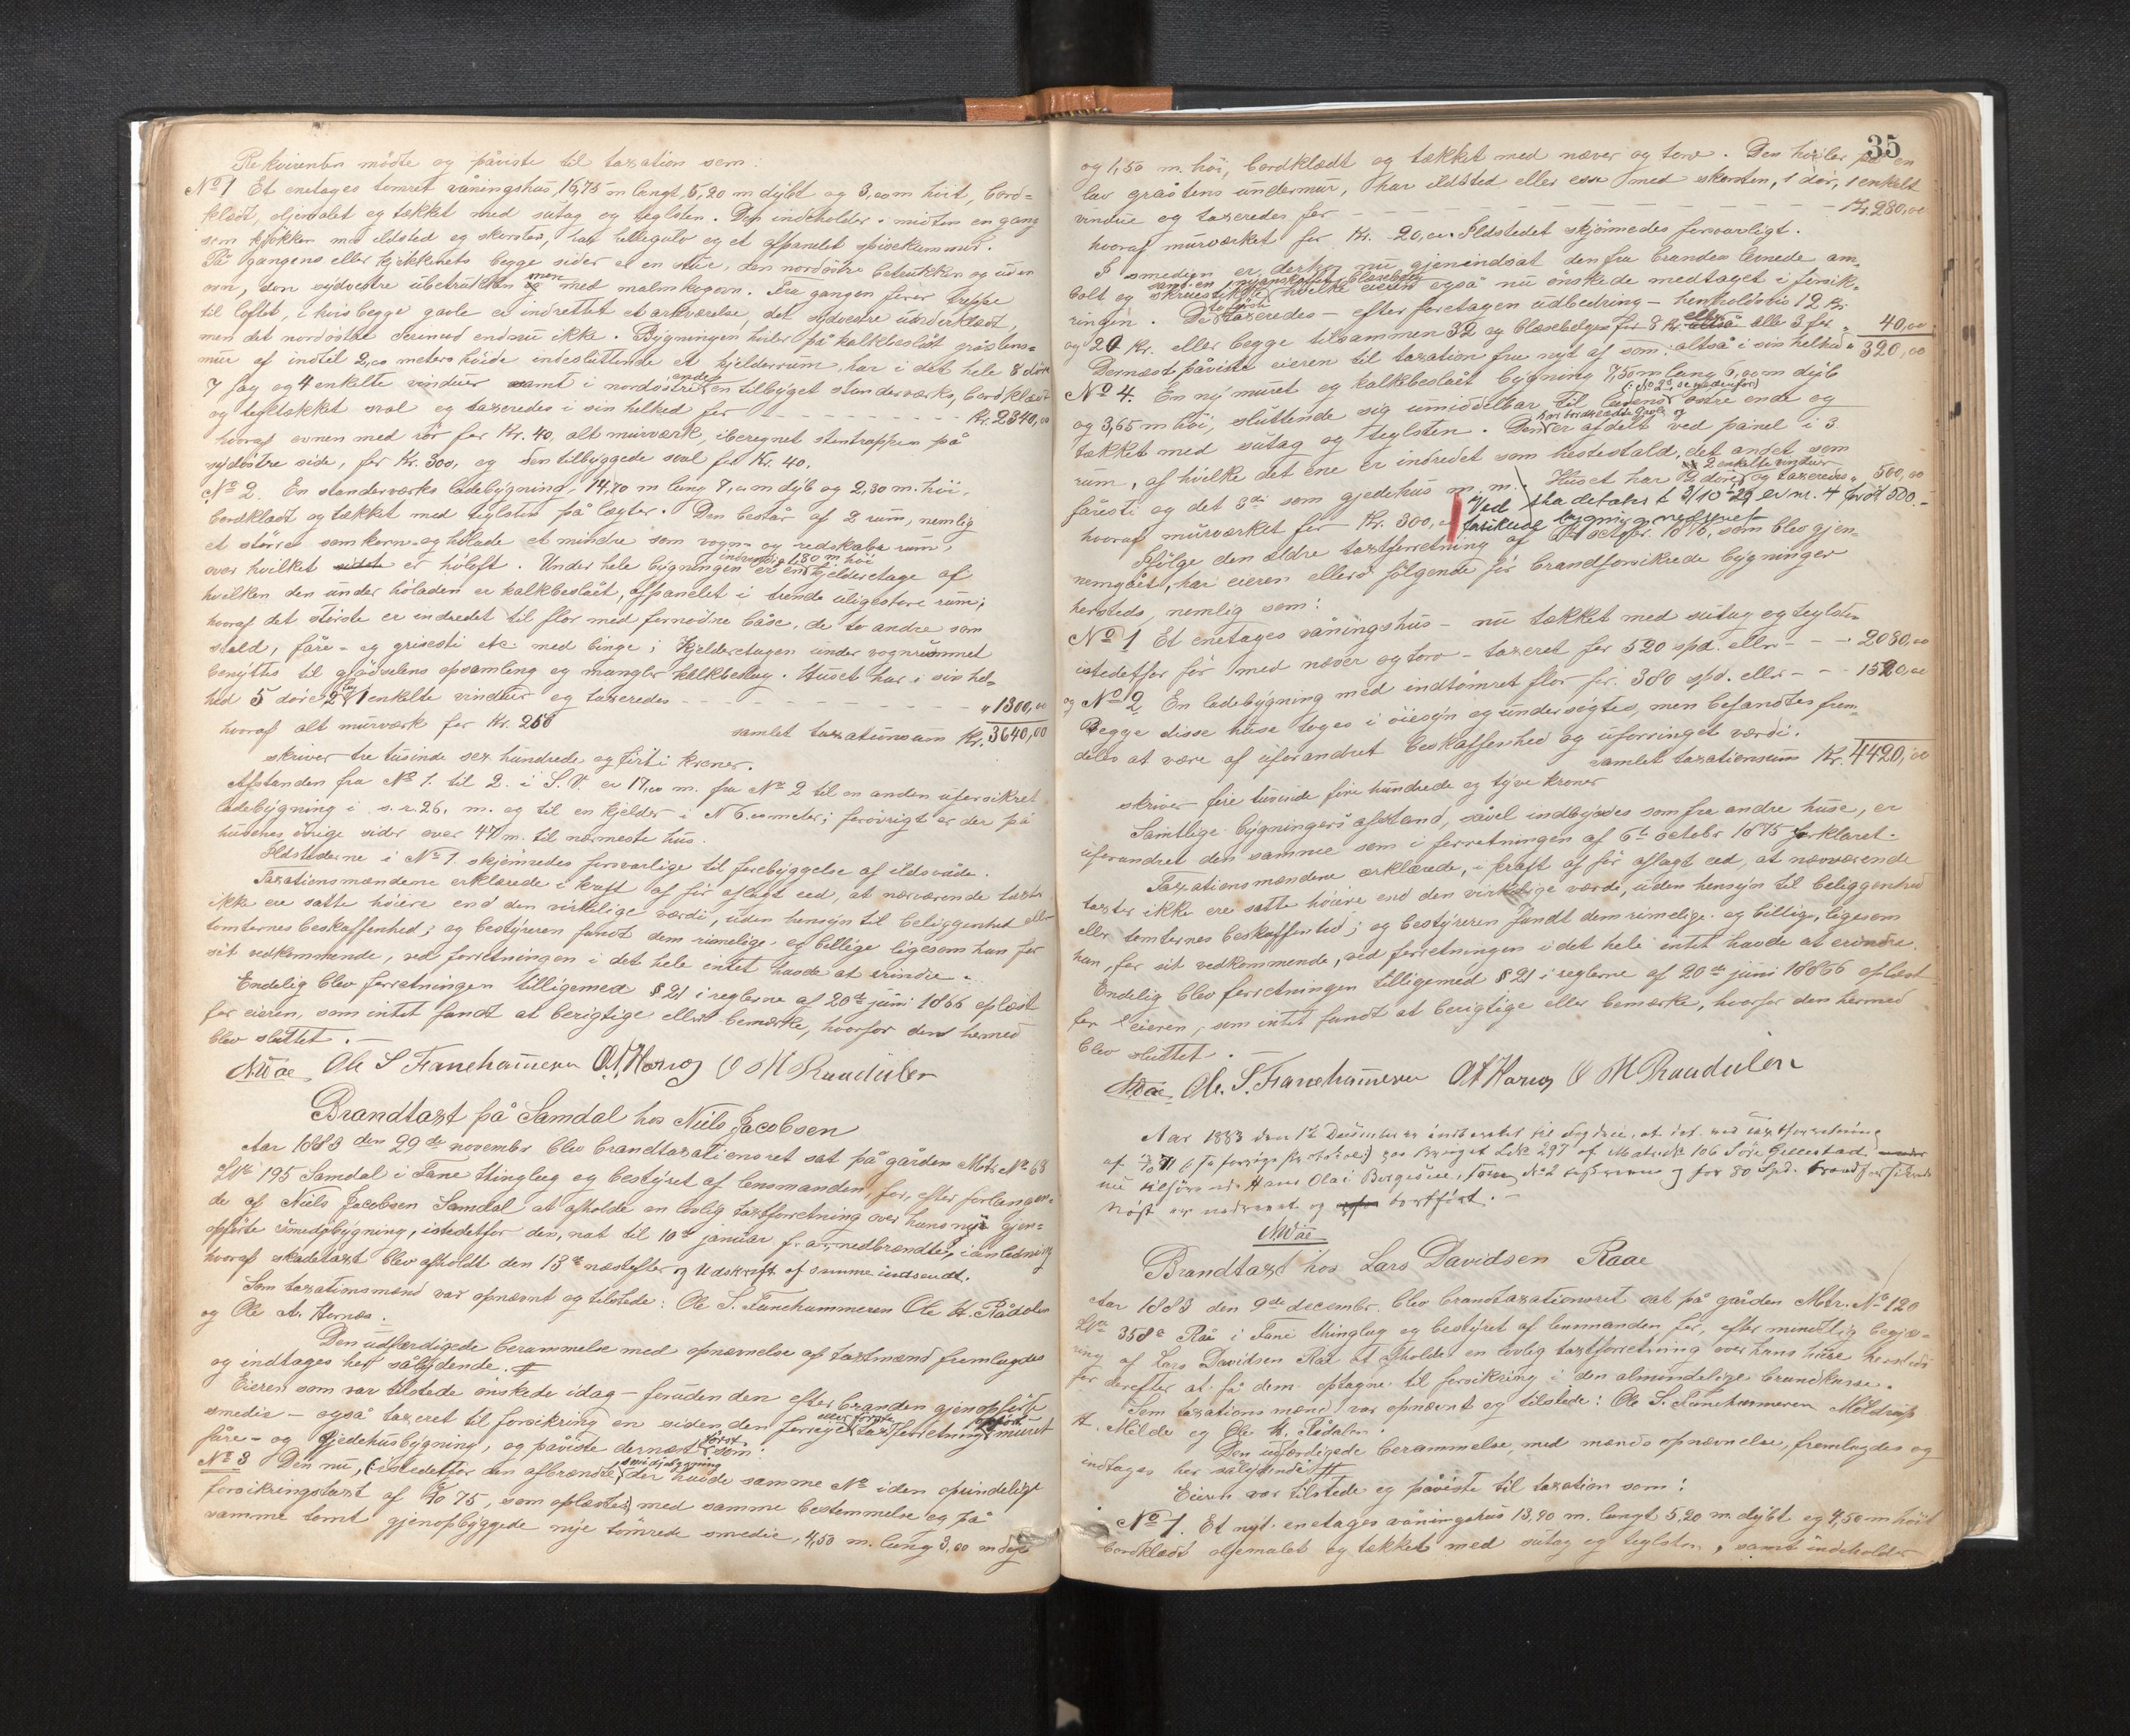 Rekvirenten mödte og påviste til taxation som:
No 1 Et enetages tomret våningshus, 15,75 m langt, 5,20 m dybt og 3,00 m höit, bord=
klædt, oljemalet og tækket med sutag og teglsten. Den indeholder i midten en gang
som kjökken med ildsted og skorsten, har hellegulv og et afpanelet spisekammer.
På gangens eller kjökkenets begge sider er en stue, den nordöstre betrukken og uden
ovn, den sydvestre ubetrukken men med malmkogovn. Fra gangen förer trappe
til loftet, i hvis begge gavle er indrettet et arkværelse, det sydvestre underklædt,
men det nordöstre derimod endnu ikke. Bygningen hviler på kalkbeslåt gråstens=
mur af indtil 2,00 meters höide indesluttende et kjelderrum, har i det hele 8 döre
7 fag og 4 enkelte vinduer samt i nordöstre ende en tilbyget standerværks, bordklædt
og tegltækket sval og taxeredes i sin helhed for - - - Kr. 2340,00
hvoraf ovnen med rör for Kr. 40, alt murværk, iberegnet stentrappen på
sydöstre side, for Kr. 300, og den tilbyggede sval for Kr. 40.
No 2. En standerværks ladebygning, 14,70 m lang 7,00 m dyb og 2,30 m. höi,
bordklædt og tækket med teglsten på lægter. Den består af 2 rum, nemlig
et större som korn- og hölade et mindre som vogn- og redskabs rum,
over hvilket er höloft. Under hele bygningen er en indvendig 1,80 m höi kjelderetage af
hvilken den under höladen er kalkbeslåt, afpanelet i trende uligestore rum;
hvoraf det störste er indredet til flor med fornödne båse, de to andre som
stald, fåre- og grisesti etc med binge; kjelderetagen under vognrummet
benyttes til gjödselens opsamling og mangler kalkbeslag. Huset har i sin hel=
hed 5 döre, 2 fag 1 enkelte vinduer og taxeredes - - - " 1300,00
hvoraf alt murværk for Kr. 260 samlet taxationsum Kr. 3640,00
skriver tre tusinde sex hundrede og firti kroner.
Afstanden fra No 1. til 2. i S.V. er 17,00 m. fra No 2 til en anden uforsikret
ladebygning i s.v. 26, m. og til en kjelder i N 6,00 meter; forövrigt er der på
husenes övrige sider over 47 m. til nærmeste hus.
Ildstederne i No 1. skjönnedes forsvarlige til forebyggelse af ildsvåde.
Taxationsmændene erklærede i kraft af för aflagt eed, at nærværende taxter
ikke ere satte höiere end den virkelige værdi, uden hensyn til beliggenhed eller
tomternes beskaffenhed; og bestyreren fandt dem rimelige og billige ligesom han for
sit vedkommende, ved forretningen i det hele intet havde at erindre.
Endelig blev forretningen tilligemed § 21 i reglerne af 20de juni 1866 oplæst
for eieren, som intet fandt at berigtige eller bemærke, hvorfor den hermed
blev sluttet.
Ole S Fanehammeren
Brandtaxt på Samdal hos Niels Jacobsen
Aar 1883 den 29de november blev brandtaxationsret sat på gården Mtr. No 68
LNo 195 Samdal i Fane thinglag og bestyret af lensmanden, for, efter forlangen=
de af Niels Jacobsen Samdal at afholde en lovlig taxtforretning over hans nye gjen=
opförte smedjebygning, istedetfor den, nat til 10de januar f. a. nedbrændte, i anledning
hvoraf skadetaxt blev afholdt den 13de næstefter og Udskrift af samme indsendt.
Som taxationsmænd var opnævnt og tilstede: Ole S. Fanehammeren Ole H. Rådalen
og Ole A. Hornæs.
Den udfærdigede berammelse med opnævnelse af taxtmænd fremlagdes
og indtages her sålydende. #
Eieren som var tilstede önskede idag - foruden den efter branden gjenopförte
smedie - også taxeret til forsikring en siden den forrige eller förste taxtforretning opfört muret
fåre- og gjedehusbygning, og påviste dernæst först som:
No 3 Den nu, (istedetfor den afbrændte smediebygning) der havde samme No i den oprindelige
forsikringstaxt af 6/10 75, som oplæstes, med samme bestemmelse og på
samme tomt gjenopbyggede nye tömrede smedie, 4,50 m. lang 3,00 m dyb
35
og 1,50 m. höi, bordklædt og tækket med næver og torv. Den hviler på en
lav gråstens undermur, har ildsted eller esse med skorsten, 1 dör, 1 enkelt
vindue og taxeredes for - - - Kr. 280,00
hvoraf murværket for Kr. 20,00. Ildstedet skjönnedes forsvarligt.
I smedien er derhos nu gjenindsat den fra branden levnede am=
bolt og skruestikke samt en nyanskaffet blæsebelg hvilke eieren også nu önskede medtaget i forsik=
ringen. De to förste taxeredes - efter foretagen udbedring - henholdsvis 12 Kr.
og 20 Kr. eller begge tilsammen 32 og blæsebelgen for 8 Kr. eller alle 3 for " 40,00
altså i sin helhed " 320,00
Dernæst påviste eieren til taxation fra nyt af som:
No 4. En ny muret og kalkbeslået bygning 7,50 m lang 6,00 m dyb
og 3,65 m höi, sluttende sig umiddelbar til ladens (: No 2, se nedenfor) östre ende og
tækket med sutag og teglsten. Den har bordklædte gavle og er afdelt ved panel i 3
rum, af hvilke det ene er indredet som hestestald, det andet som
fåresti og det 3die som gjedehus m. m. Huset har 2 döre, 2 enkelte vinduer og taxeredes " 500,00
hvoraf murværket for Kr. 300,00
Ved skadetakst 3/10-29 er nr. 4 for kr 500.-
Ifölge den ældre taxtforretning af 6te octobr. 1875, som blev gjen=
nemgået, har eieren ellers fölgende för brandforsikrede bygninger
hersteds, nemlig som:
No 1 Et enetages våningshus - nu tækket med sutag og teglsten
istedetfor för med næver og torv - taxeret for 520 spd. eller - - 2080,00
og No 2 En ladebygning med indtömret flor for 380 spd. eller - - 1520,00
Begge disse huse toges i öiesyn og undersögtes, men befandtes frem=
deles at være af uforandret beskaffenhed og uforringet værdi.
samlet taxationsum Kr. 4420,00
skriver fire tusinde fire hundrede og tyve kroner
Samtlige bygningers afstand, såvel indbyrdes som fra andre huse, er
uforandret den samme som i forretningen af 6te octobr 1875 forklaret.
Taxationsmændene erklærede, i kraft af för aflagt eed, at nærværende
taxter ikke ere satte höiere end den virkelige værdi, uden hensyn til beliggenhed
eller tomternes beskaffenhed; og bestyreren fandt dem rimelige og billige, ligesom
han, for sit vedkommende, ved forretningen i det hele intet havde at erindre.
Endelig blev forretningen tilligemed § 21 i reglerne af 20de juni 1866 oplæst
for eieren, som intet fandt at berigtige eller bemærke, hvorfor den hermed
blev sluttet.
Ole S. Fanehammeren
Aar 1883 den 17 December indberettet til fogden, at det ved taxtforretning
af hos Brynjel LNo 297 af Matr. No 106 Söre Greestad
nu tilhörende Hans Olai Börgesen, som No 2 for 80 Spd. brandforsikrede
nöst er nedrevet og bortfört.
Brandtaxt hos Lars Davidsen Raae
Aar 1883 den 9de decembr. blev brandtaxationsret sat på gården Mtr. No 120
LNo 358a Raa i Fane thinglag og bestyret af lensmanden for, efter mindtlig begjæ=
ring af Lars Davidsen Raa at afholde en lovlig taxtforretning over hans huse hersteds
for derefter at få dem optagne til forsikring i den almindelige brandkasse.
Som taxationsmænd var opnævnt og tilstede: Ole S. Fanehammeren Möldrup
H. Milde og Ole H. Rådalen.
Den udfærdigede berammelse, med mænds opnævnelse, fremlagdes og
indtages her sålydende #
Eieren var tilstede og påviste til taxation som:
No 1. Et nyt enetages våningshus 13,90 m. langt 5,20 m. dybt og 4,50 m höit
bordklædt oljemalet og tækket med sutag og teglsten, samt indeholder